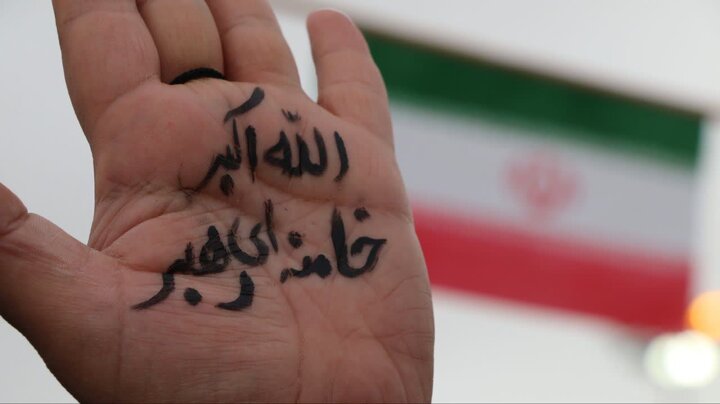 الله اکبر
خامنه ای رهبر